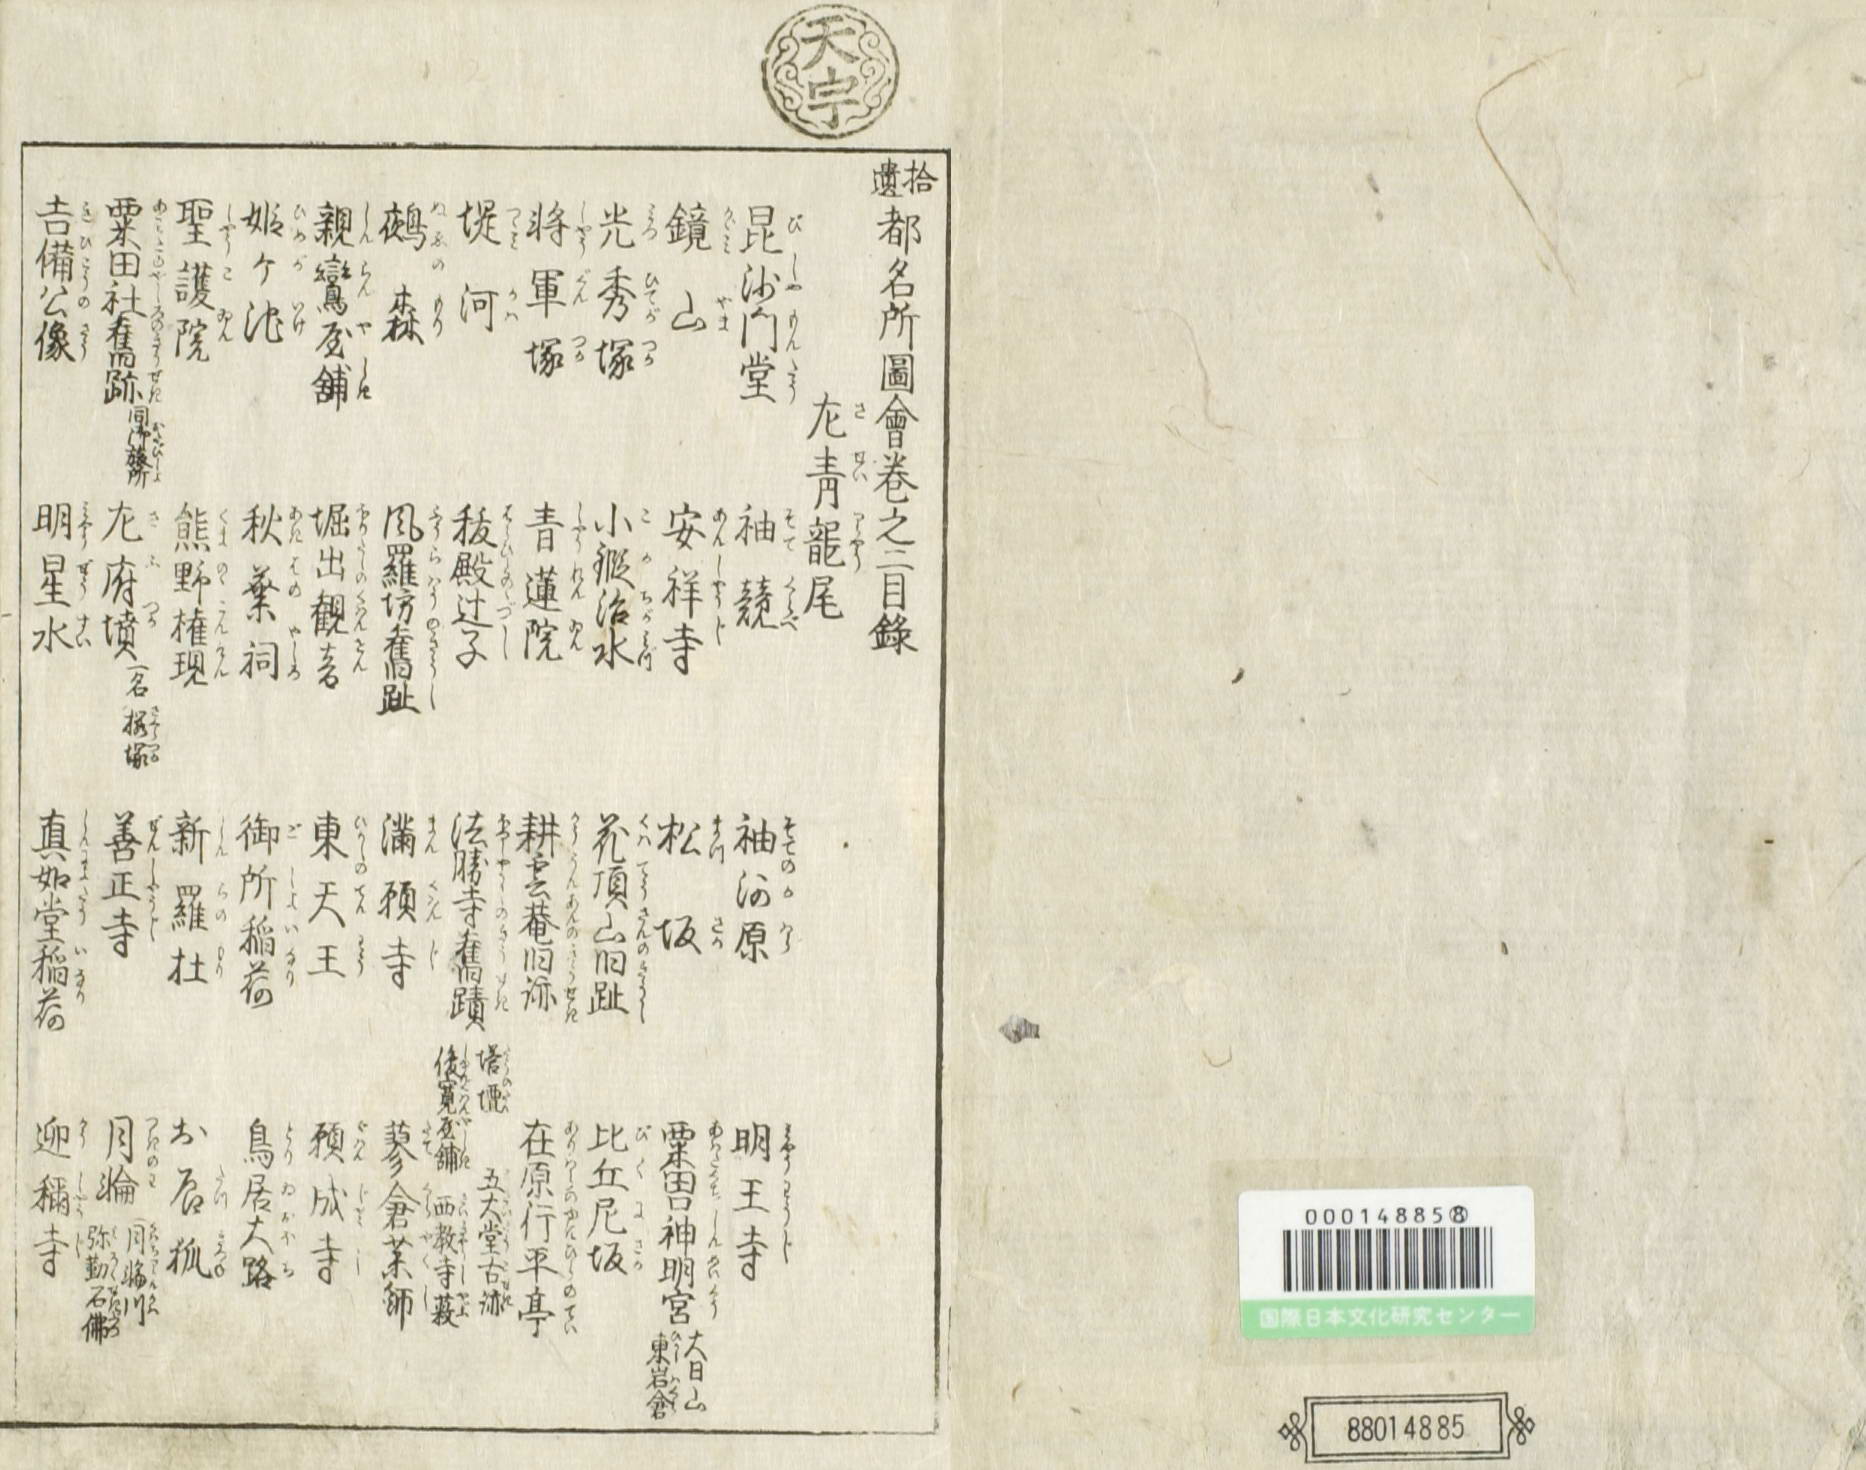 天宇
拾遺都名所圖會卷之二目錄
左青龍尾
昆沙門堂
袖競
袖河原
明王寺
鏡山
安祥寺
松坂
粟田口神明宮 大日山 東岩倉
光秀塚
小鍛冶水
花頂山旧趾
比丘尼坂
将軍塚
青蓮院
耕雲菴旧跡
在原行平亭
堤河
祓殿辻子
法勝寺舊蹟 塔壇 五大堂古跡 俊寛屋舗 西教寺薮
鵺森
風羅坊舊趾
満願寺
蓼倉薬師
親鸞屋舗
堀出観音
東天王
願成寺
姫ケ池
秋葉祠
御所稲荷
鳥居大路
聖護院
熊野権現
新羅社
お辰狐
粟田社舊跡 同御旅所
左府墳 一名桜塚
善正寺
月輪 月輪川 弥勒石佛
吉備公像
明星水
真如堂稲荷
迎稱寺
00014885⑧
国際日本文化研究センター
88014885